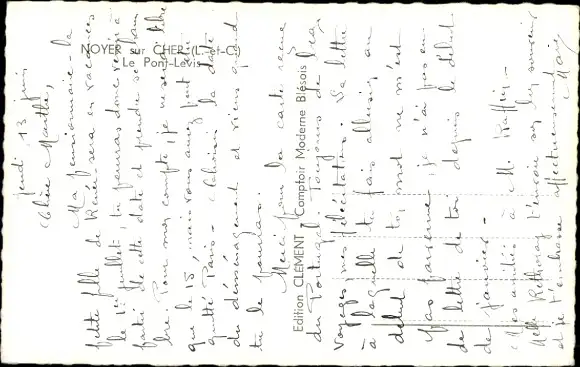 NOYER sur CHER (L.-et-C.)
Le Pont-Levis
Edition CLEMENT Comptoir Moderne Blésois
jeudi 13 juin
Chère Marthe,
Ma pensionnaire - la
petite fille de Renée sera en vacances
le 1er juillet, tu pourras donc venir à
partir de cette date et prendre sa cham
bre. Pour mon compte, je ne serai libre
que le 15, mais vous aurez peut être
quitté Paris - Choisis la date
du déménagement et viens quand
tu le pourras.
Merci pour la carte reçue
du Portugal. Toujours de beaux
voyages, mes félicitations. La lettre
à laquelle tu fais allusion, au
début de toi, mot ne m'est
pas parvenue, je n'ai pas eu
de lettre de toi depuis le début
de janvier -
Mes amitiés à M.
Melle
et je t'embrasse affectueusement